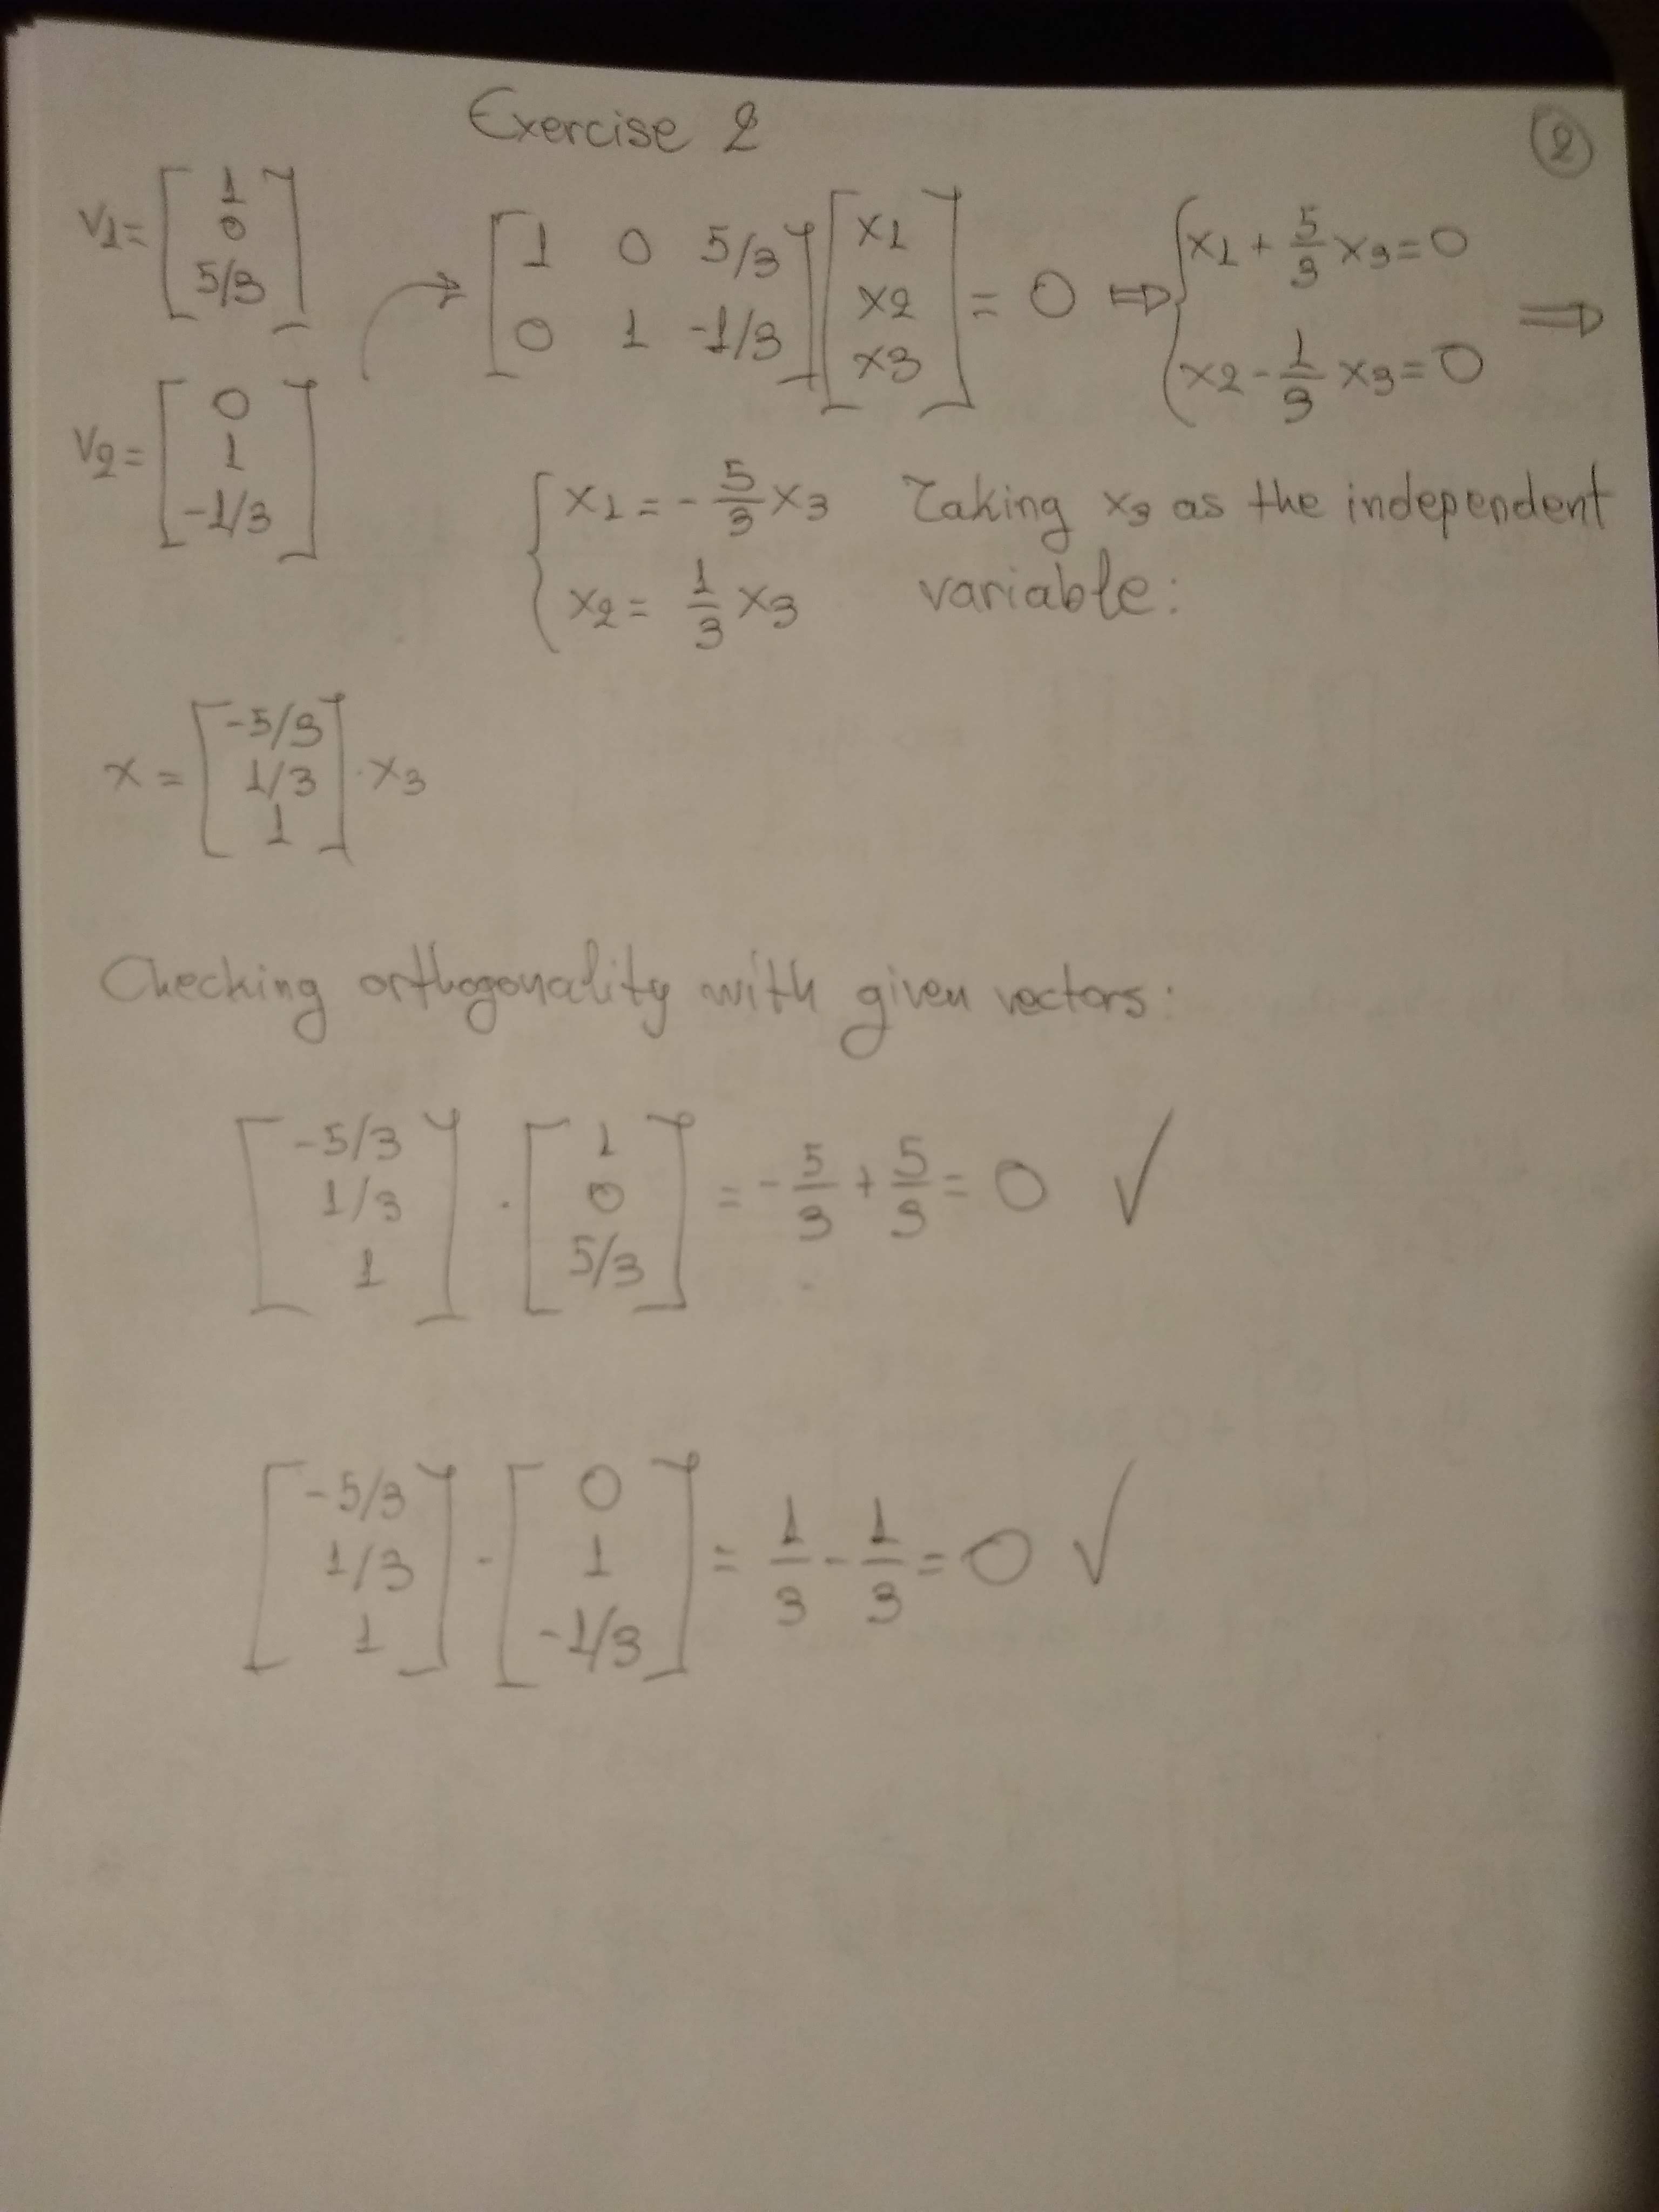 Exercise 2
②
v1 = [1 0 5/3]
[1 0 5/3; 0 1 -1/3] [x1 x2 x3] = 0 ⇒ { x1 + 5/3 x3 = 0
x2 - 1/3 x3 = 0 ⇒
v2 = [0 1 -1/3]
{ x1 = - 5/3 x3 Taking x3 as the independent
x2 = 1/3 x3 variable:
x = [-5/3 1/3 1] · x3
Checking orthogonality with given vectors:
[-5/3 1/3 1] · [1 0 5/3] = - 5/3 + 5/3 = 0 ✓
[-5/3 1/3 1] · [0 1 -1/3] = 1/3 - 1/3 = 0 ✓